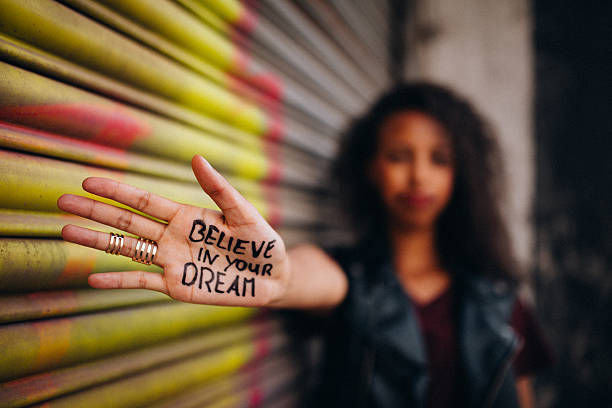 BELIEVE
IN YOUR
DREAM